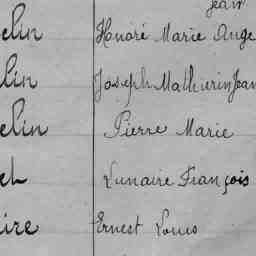 jean
elin Honoré Marie Ange
lin Joseph Mathurin Jean
elin Pierre Marie
el Lunaire François
ire Ernest Louis